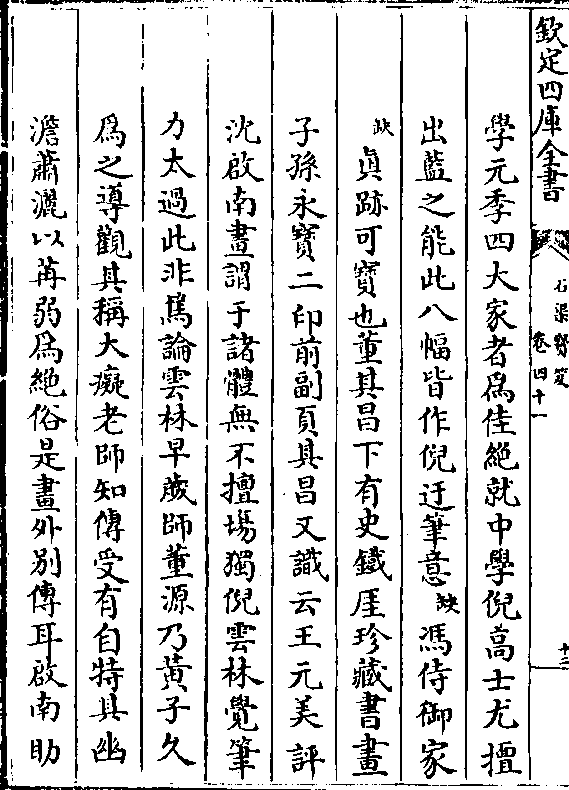 欽定四庫全書
石渠寶笈
卷四十一
十二
學元季四大家者為佳絶就中學倪高士尤擅
出藍之能此八幅皆作倪迂筆意缺馮侍御家
缺真跡可寶也董其昌下有史鐵厓珍藏書畫
子孫永寶二印前副頁其昌又識云王元美評
沈啟南畫謂于諸體無不擅塲獨倪雲林覺筆
力太過此非篤論雲林早歲師董源乃黃子久
為之導觀其稱大癡老師知傳受有自特其幽
澹蕭灑以苒弱為絶俗是畫外别傳耳啟南助